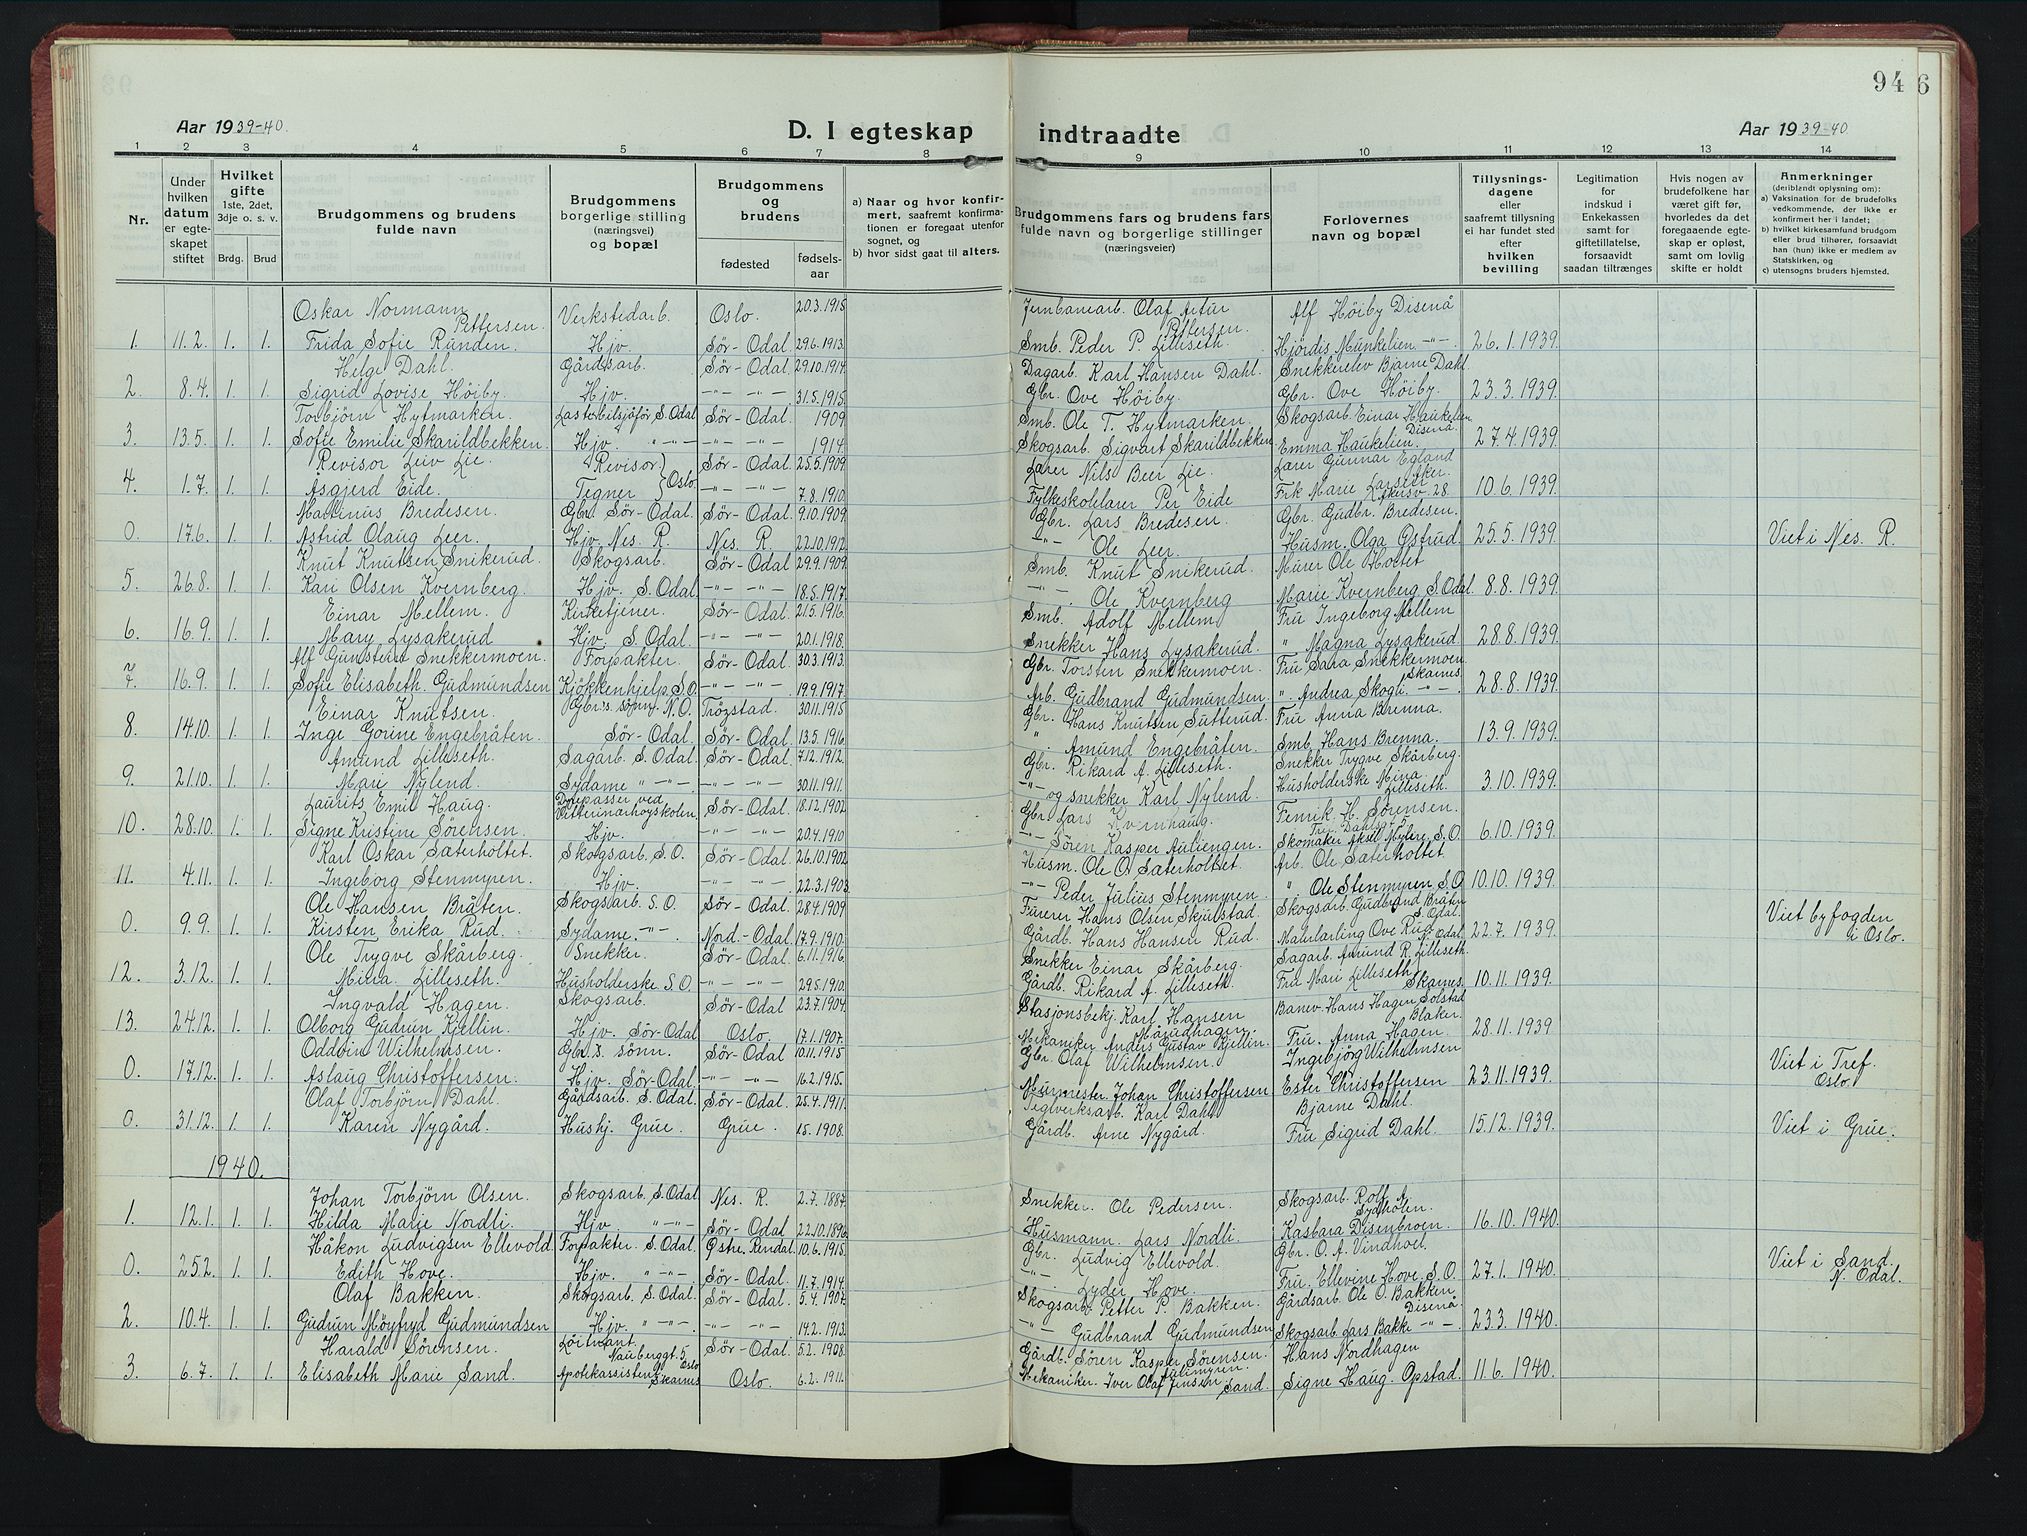 94 6
Aar 1939-40.
D. I egteskap indtraadte
Aar 1939-40
1 2 3 4 5 6 7 8 9 10 11 12 13 14
Nr.
Under hvilken datum er egteskapet stiftet
Hvilket gifte 1ste, 2det, 3dje o. s. v.
Brdg. Brud
Brudgommens og brudens fulde navn
Brudgommens borgerlige stilling (næringsvei) og bopæl
Brudgommens og brudens
fødested
fødselsaar
a) Naar og hvor konfirmert, saafremt konfirmationen er foregaat utenfor sognet, og
b) hvor sidst gaat til alters.
Brudgommens fars og brudens fars fulde navn og borgerlige stillinger (næringsveier)
Forlovernes navn og bopæl
Tillysningsdagene eller saafremt tillysning ei har fundet sted efter hvilken bevilling
Legitimation for indskud i Enkekassen samt for giftetillatelse, forsaavidt saadan tiltrænges
Hvis nogen av brudefolkene har været gift før, hvorledes da det foregaaende egteskap er opløst, samt om lovlig skifte er holdt
Anmerkninger (deriblandt oplysning om):
a) Vaksination for de brudefolks vedkommende, der ikke er konfirmert her i landet;
b) hvilket kirkesamfund brudgom eller brud tilhører, forsaavidt han (hun) ikke er medlem av Statskirken, og
c) utensogns bruders hjemsted.
Oskar Normann Pettersen. Verkstedarb. Oslo. 20.3.1915 Jernbanearb. Olaf Artur Pettersen. Alf Höiby Disenå
1. 11.2. 1. 1. Frida Sofie Runden. Hjv. Sör-Odal 29.6.1913. Smb. Peder P. Lilleseth. Hjördis Munkelien -"- 26.1.1939.
Helge Dahl. Gårdsarb. Sör-Odal 29.10.1914 Dagarb. Karl Hansen Dahl. Snekkerelev Bjarne Dahl
2. 8.4. 1. 1. Sigrid Lovise Höiby. Hjv. -"- -"- 31.5.1915. Gbr. Ove Höiby. Gbr. Ove Höiby. 23.3.1939.
Torbjörn Hytmarken. Lastebilsjåför S. Odal Sör-Odal. 1909 Smb. Ole T. Hytmarken. Skogsarb. Einar Haukelien Disenå
3. 13.5. 1. 1. Sofie Emilie Skarildbekken. Hjv. "-"- -"- -"- 1914. Skogsarb. Sigvart Skarildbekken Emma Haukelien. 27.4.1939.
Revisor Leiv Lie. Revisor Sör-Odal. 25.5.1909 Lærer Nils Beer Lie. Lærer Gunnar Egland Aker.
4. 1.7. 1. 1. Asgjerd Eide. Tegner Oslo. -"- -"- 7.8.1910. Fylkeskolelærer Per Eide Frk Marie Larsen Akersv. 28. 10.6.1939.
Martinus Bredesen. Gbr. Sör-Odal. Sör-Odal. 9.10.1909. Gbr. Lars Bredesen. Gbr. Gudbr. Bredesen.
0. 17.6. 1. 1. Astrid Olaug Leer. Hjv. Nes. R. Nes. R. 22.10.1912. -"- Ole Leer. Husm. Olga Ostrud. 25.5.1939. Viet i Nes. R.
Knut Knutsen Snikerud. Skogsarb. Sör-Odal 29.9.1909. Smb. Knut Snikerud. Murer Ole Holtet
5. 26.8. 1. 1. Kari Olsen Kvernberg. Hjv. S. Odal -"- -"- 18.5.1917. -"- Ole Kvernberg Marie Kvernberg S. Odal. 8.8.1939.
Einar Mellem. Kirketjener. Sör-Odal. 21.5.1916. Smb. Adolf Mellem. Fru Ingeborg Mellem
6. 16.9. 1. 1. Mary Lysakerud Hjv. S. Odal. -"- -"- 20.1.1918. Snekker Hans Lysakerud. " Magna Lysakerud. 28.8.1939.
Alf Gunsteni Snekkermoen. Forpakter. Sör-Odal. 30.3.1913. Gbr. Torsten Snekkermoen. Fru Sara Snekkermoen Skarnes.
7. 16.9. 1. 1. Sofie Elisabeth. Gudmundsen Kjökkenhjelp. S.O. -"- -"- 19.9.1917. Arb. Gudbrand Gudmundsen. ". Andrea Skogli. -"-. 28.8.1939.
Einar Knutsen. Gbr's sönn. N.O. Trögstad. 30.11.1915 Gbr. Hans Knutsen Sutterud. Fru Anna Brenna.
8. 14.10. 1. 1. Inge Gorine Engebråten. Sör-Odal. Sör-Odal. 13.5.1916. " Amund Engebråten. Smb. Hans Brenna. 13.9.1939.
Amund Lilleseth. Sagarb. S. Odal Sör-Odal. 7.12.1912. Gbr. Rikard A. Lilleseth. Snekker Trygve Skårberg.
9. 21.10. 1. 1. Mari Nylend. Sydame "-"- -"- -"- 30.11.1911. -"- og snekker Karl Nylend. Husholderske Mina Lilleseth. 3.10.1939.
Laurits Emil Haug. Dyrepasser ved Vetterinærhöyskolen. Sör-Odal. 18.12.1902 Gbr. Lars Kvernhaug. Fenrik. H. Sörensen.
10. 28.10. 1. 1. Signe Kristine Sörensen. Hjv. -"- -"- 20.4.1910 -"- Sören Kasper Auliengen. Skomaker Aksel Mylere. S.O. 6.10.1939.
Karl Oskar Sæterholtet. Skogsarb. S.O. Sör-Odal. 26.10.1902 Husm. Ole O Sæterholtet. Arb. Ole Sæterholtet.
11. 4.11. 1. 1. Ingeborg Stenmyren. Hjv. -"- -"- 22.3.1903. -"- Peder Julius Stenmyren. " Ole Stenmyren, S.O 10.10.1939.
Ole Hansen Bråten. Skogsarb. S.O. Sör-Odal. 28.4.1909 Furerer Hans Olsen Skjulstad. Skogsarb. Gudbrand Bråten S. Odal.
0. 9.9. 1. 1. Kirsten Erika Rud. Sydame. -"-. Nord.-Odal. 17.9.1910. Gårdb. Hans Hansen Rud. Malerlærling Ove Rud N. Odal. 22.7.1939. Viet byfogden i Oslo.
Ole Trygve Skårberg. Snekker. Sör-Odal. 6.11.1916. Snekker Einar Skårberg. Sagarb. Amund R. Lilleseth.
12. 3.12. 1. 1. Mina. Lilleseth. Husholderske. S.O. -"- -"- 29.5.1910. Gårdb. Rikard A. Lilleseth. Fru Mari Lilleseth Skarnes. 10.11.1939.
Ingvald Hagen. Skogsarb. Sör-Odal 23.7.1904. Stasjonsbekj. Karl Hansen Mårudhagen. Banev. Hans Hagen Solstad Blaker.
13. 24.12. 1. 1. Olborg Gudrun Kjellin. Hjv. Sör-Odal Oslo. 17.1.1907. Mekaniker Anders Gustav Kjellin. Fru. Anna Hagen. 28.11.1939
Oddvin Wilhelmsen. Gbr.s sönn. Sör-Odal 10.11.1915 Gbr. Olaf Wilhelmsen. Ingebjörg Wilhelmsen
0. 17.12. 1. 1. Aslaug Christoffersen. Hjv. Sör-Odal. -"- -"- 16.2.1915. Murmester. Johan Christoffersen Ester Christoffersen 23.11.1939. Viet i Tref. Oslo.
Olaf Torbjörn Dahl. Gårdsarb. S. Odal. Sör-Odal. 25.4.1911. Teglverksarb. Karl Dahl Bjarne Dahl.
0. 31.12. 1. 1. Karen Nygård. Hushj. Grue. Grue. 15.1908. Gårdb. Arne Nygård. Fru Sigrid Dahl. 15.12.1939. Viet i Grue.
1940.
Johan Torbjörn Olsen. Skogsarb. S. Odal Nes. R. 2.7.1887. Snekker. Ole Pedersen. Skogsarb. Rolf A. Sydholen.
1. 12.1. 1. 1. Hilda Marie Nordli. Hjv. "-"- Sör-Odal 22.10.1896 Husmann. Lars Nordli. Kasbara Disenbroen. 16.10.1940.
Håkon Ludvigsen Ellevold. Forpakter. S. Odal. Östre. Rendal. 10.6.1915. Gbr. Ludvig Ellevold. Gbr. O. A. Vindhol.
0. 25.2. 1. 1. Edith Hove. Hjv. "-"- Sör-Odal. 11.7.1914. -"- Lyder Hove. Fru. Ellevine Hove. S.O. 27.1.1940. Viet i Sand. N. Odal.
Olaf Bakken. Skogsarb. S. Odal. Sör-Odal. 5.4.1907. Skogsarb Petter P. Bakken. Gårdsarb. Ole O. Bakken Disenå.
2. 10.4. 1. 1. Gudrun Möyfryd Gudmundsen Hjv. "-"- -"- -"- 14.2.1913. -"- Gudbrand Gudmundsen Skogsarb. Lars Bakke -"-. 23.3.1940.
Harald Sörensen. Löitnant. Nauberggt. 5 Oslo Sör-Odal. 5.2.1908. Gårdb. Sören Kasper Sörensen. Hans Nordhagen
3. 6.7. 1. 1. Elisabeth Marie Sand. Apotekassistent Skarnes Oslo. 6.2.1911. Mekaniker. Iver Olaf Jensen Sand. Signe Haug. Opstad. 11.6.1940.